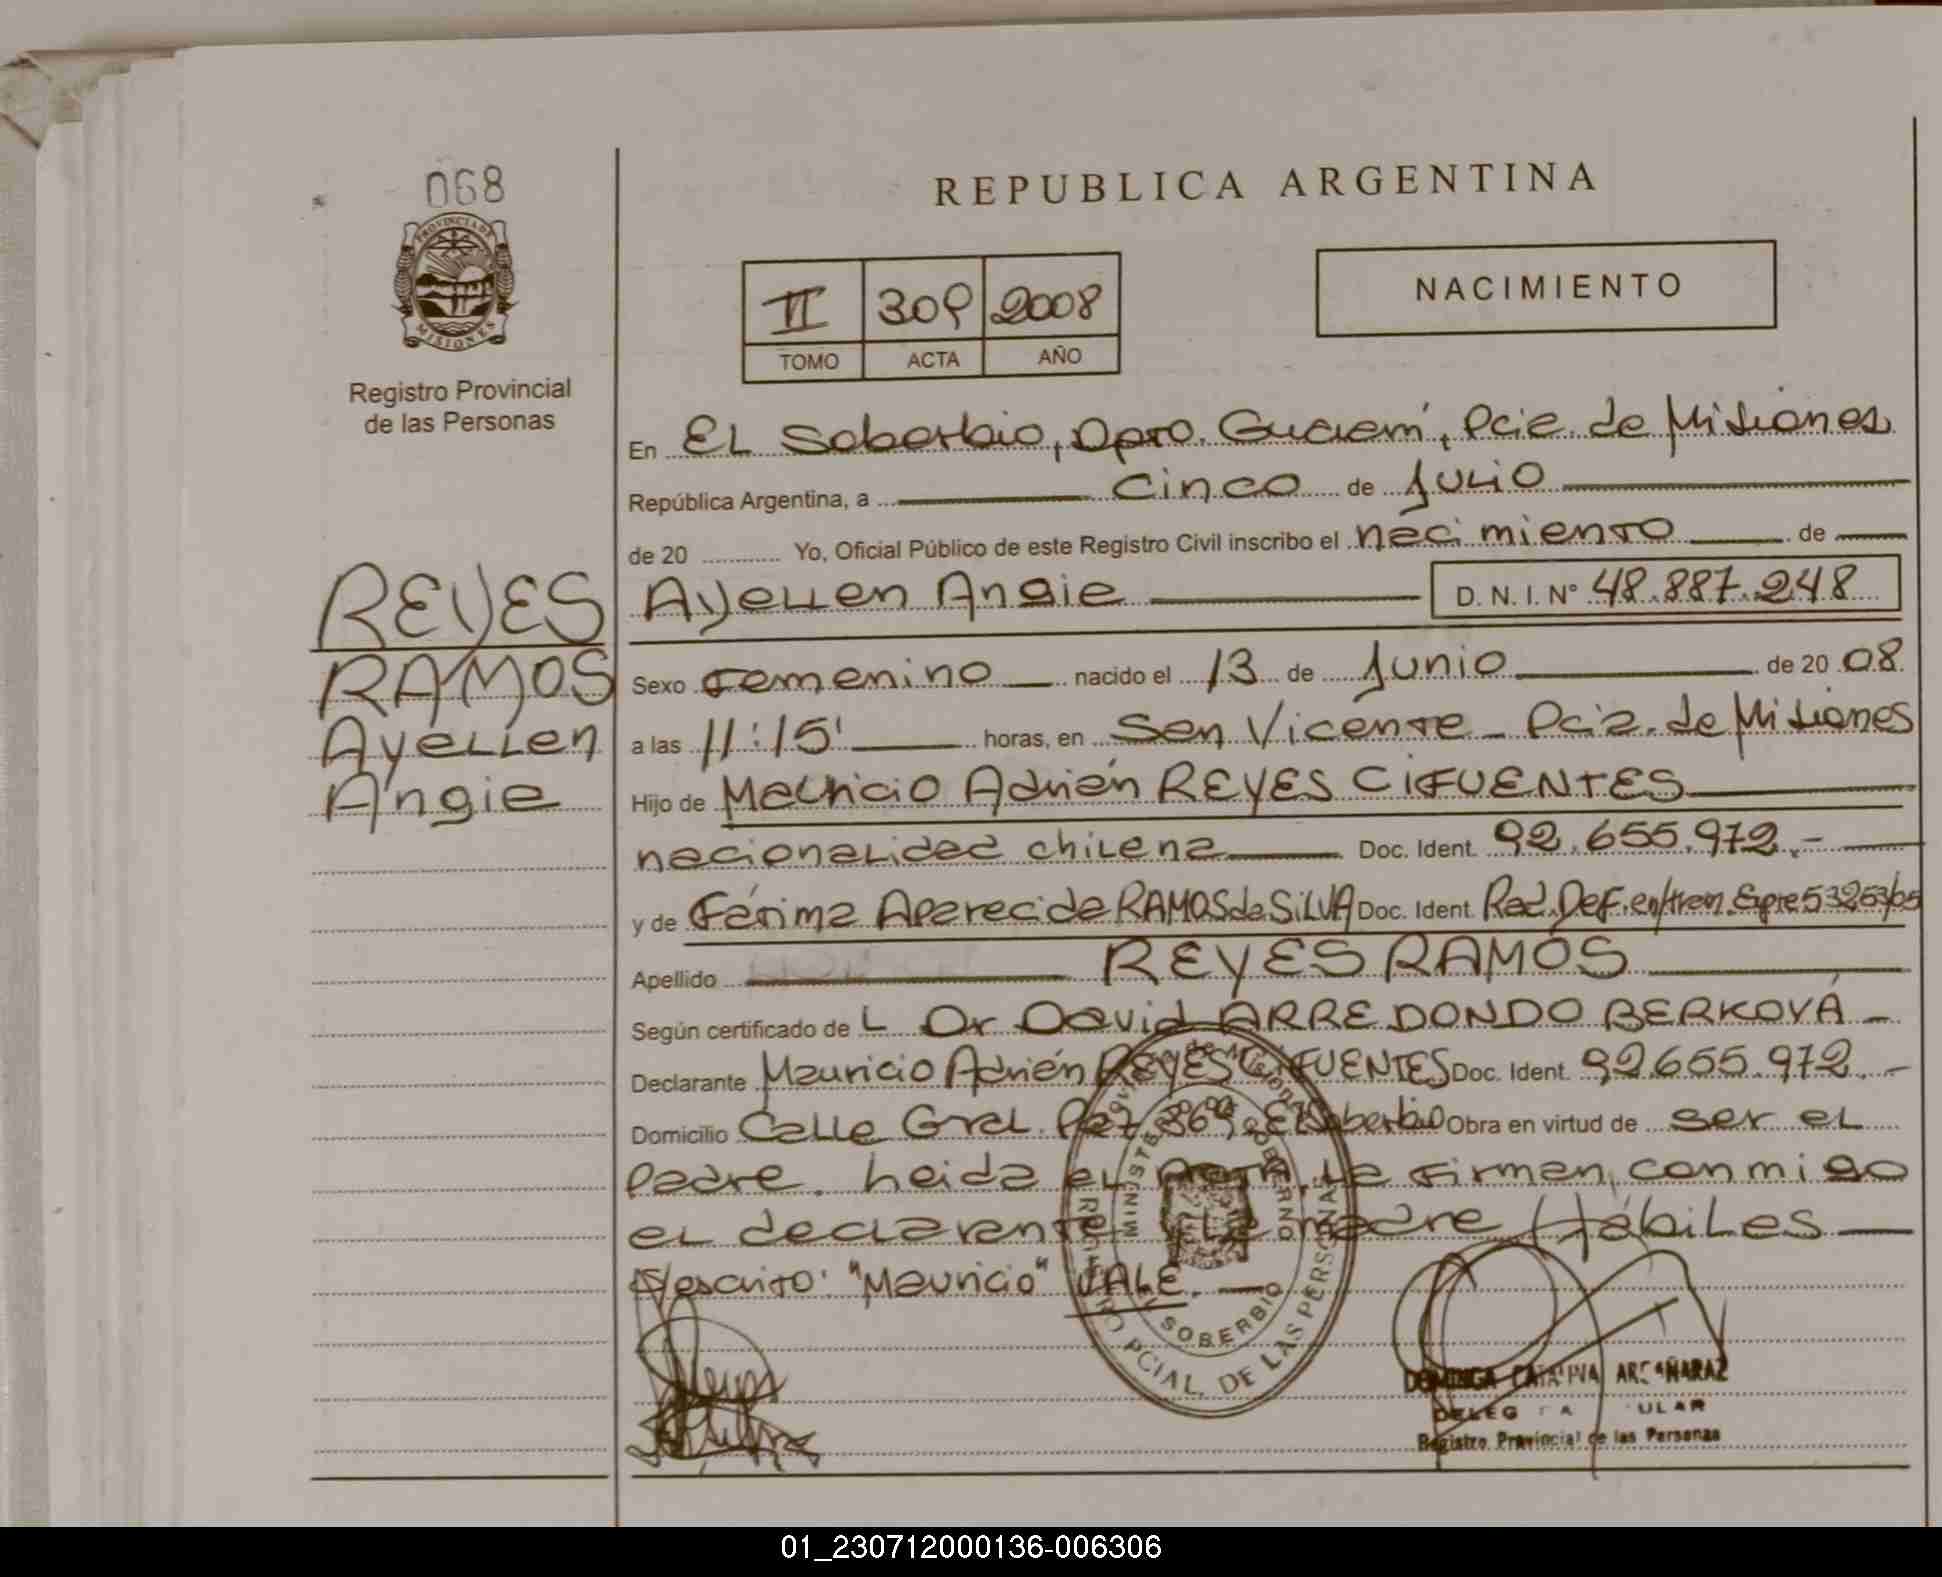 068
PROVINCIA DE
MISIONES
Registro Provincial
de las Personas
REYES
RAMOS
Ayellen
Angie
REPUBLICA ARGENTINA
II 309 2008
TOMO ACTA AÑO
NACIMIENTO
En El Soberbio, Dpto. Guaraní, Pcia. de Misiones
República Argentina, a cinco de Julio
de 20 Yo, Oficial Público de este Registro Civil inscribo el nacimiento de
Ayellen Angie D. N. I. Nº 48.887.248
Sexo Femenino nacido el 13 de Junio de 20 08.
a las 11:15' horas, en San Vicente - Pcia. de Misiones
Hijo de Mauricio Adrián REYES CIFUENTES
nacionalidad chilena Doc. Ident. 92.655.972.-
y de Fátima Aparecida RAMOS da SILVA Doc. Ident. Rad. Def. en/tram. Expte 53253/05
Apellido REYES RAMOS
Según certificado de L Dr David ARREDONDO BERKOVÁ -
Declarante Mauricio Adrián REYES CIFUENTES Doc. Ident. 92.655.972.-
Domicilio Calle Gral. Paz El Soberbio Obra en virtud de ser el
padre. heida el Acta, la firman conmigo
el declarante y la madre Hábiles
"Mauricio" VALE.
MINISTERIO GOBIERNO
SOBERBIO
PCIAL. DE LAS PERSONAS
DOMINGA CATALINA ARGAÑARAZ
Registro Provincial de las Personas
01_230712000136-006306